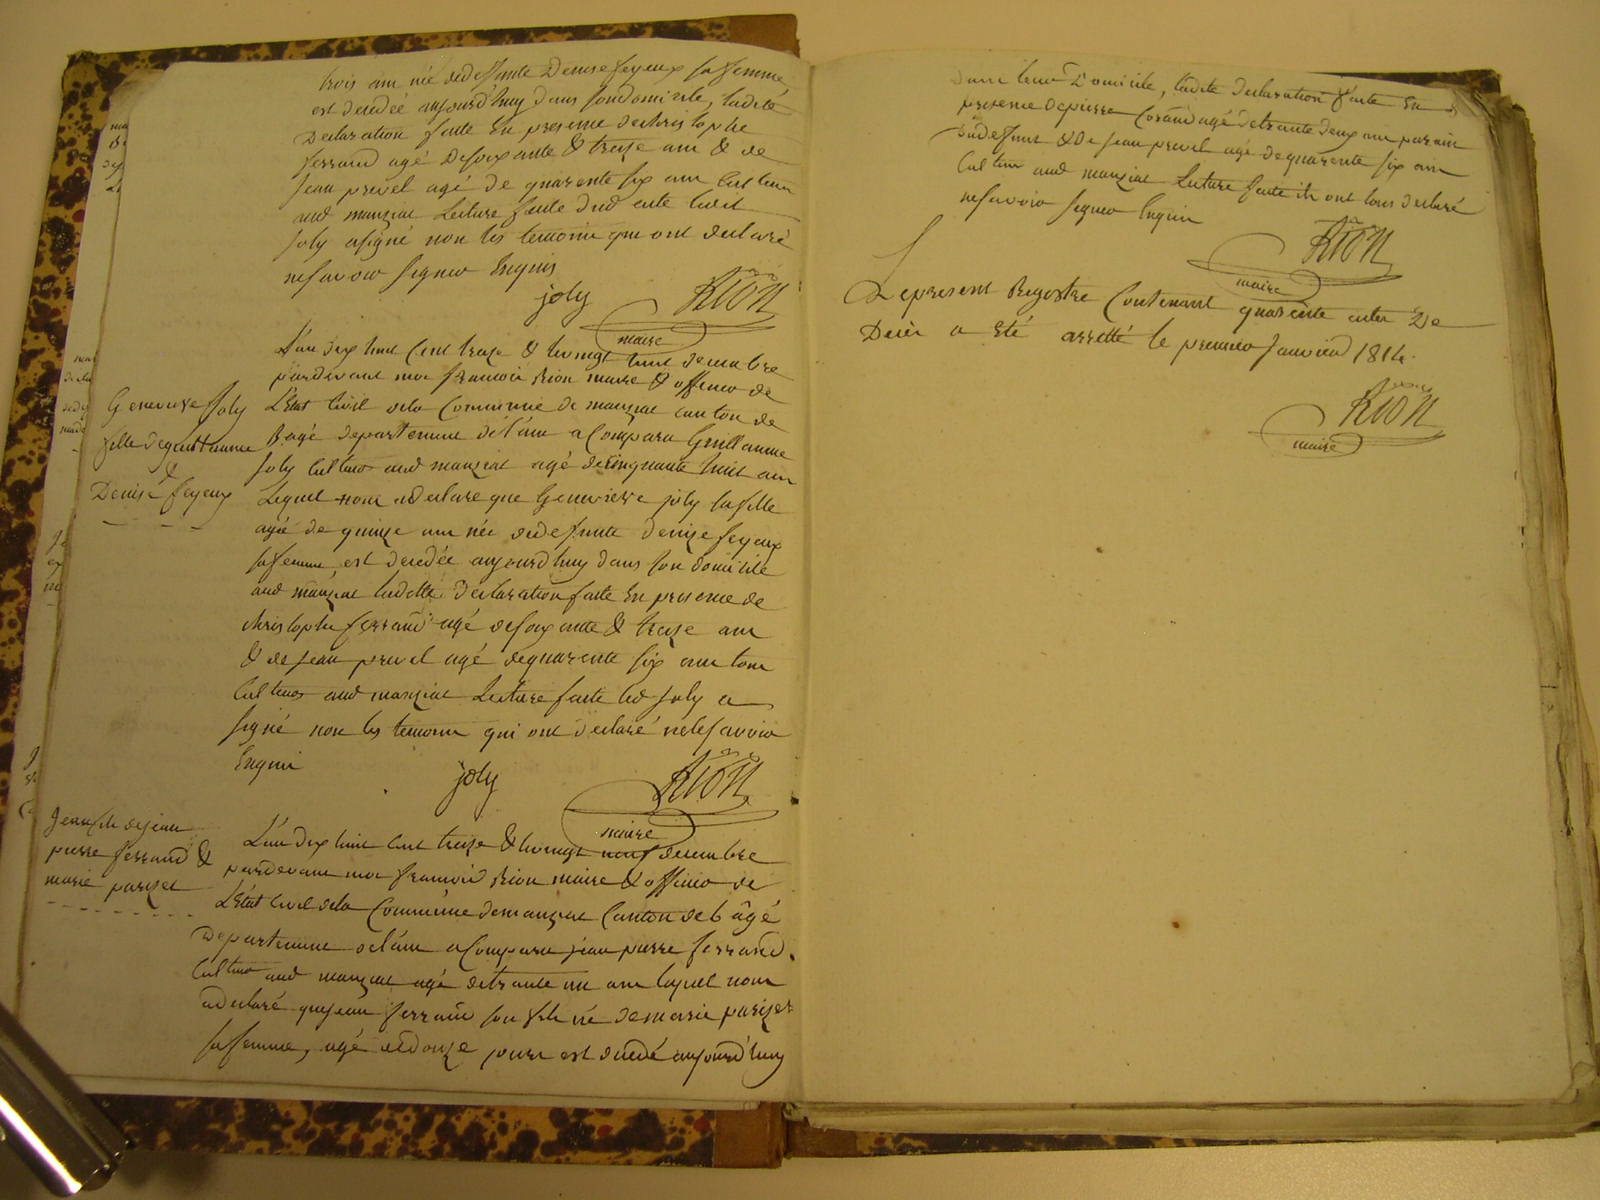 trois ans née de deffunte Denise feyeux sa femme
est dcedée aujourd'huy dans son domicile, ladite
Declaration faite En presence de christophe
ferrand agé De soixante & treize ans & de
jean prevel agé De quarente six ans Cultiv
aud manziat Lecture faite dud acte ledit
joly a signé non les temoins qui ont declaré
ne savoir signer Enquis
joly RION
maire
L'an dix huit Cent treize & le vingt huit decembre
pardevant moi francois Rion maire & officier de
L'Etat Civil de la Commune de manziat canton de
Bagé departement de l'ain a Comparu Guillaume
joly Cultiv aud manziat agé de cinquante huit ans
Lequel nous a declaré que Genevieve joly sa fille
agée de quinze ans née de deffunte denise feyeux
sa femme est decedée aujourd'huy dans son domicile
aud manziat ladite Declaration faite En presence de
christophe ferrand agé de soixante & treize ans
& de jean prevel agé de quarente six ans tous
Cultiv aud manziat Lecture faite led joly a
signé non les temoins qui ont declaré ne le savoir
Enquis
joly RION
maire
L'an dix huit cent treize & le vingt neuf decembre
pardevant moi francois Rion maire & officier de
L'Etat Civil de la Commune de manziat Canton de bâgé
Departement de l'ain a Comparu jean pierre ferrand
Cultiv aud manziat agé de trante un ans lequel nous
a declaré que jean ferrand son fils né de marie parizet
sa femme, agé de douze jours est decedé aujourd'huy
Genevieve Joly
fille de guillaume
&
Denise feyeux
Jean fils de jean
pierre ferrand &
marie parizet
Dans leur Domicile, ladite declaration faite En
presence de pierre agé de trante deux ans parain
du deffunt & De jean prevel agé de quarente six ans
Cultiv aud manziat Lecture faite ils ont tous declaré
ne savoir signer Enquis
RION
maire
Le present Registre Contenant quarente actes De
Decès a été arretté le premier Janvier 1814.
RION
maire